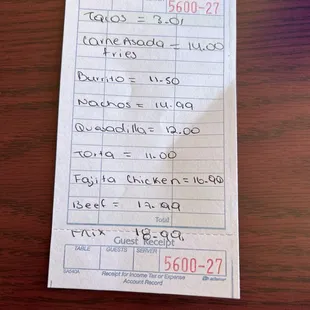 5600-27
Tacos = 3.01
Carne Asada = 14.00
fries
Burrito = 11.50
Nachos = 14.99
Quesadilla = 12.00
Torta = 11.00
Fajita Chicken = 16.99
Beef = 17.99
Total
Mix 18.99
Guest Receipt
TABLE GUESTS SERVER
5600-27
Receipt for Income Tax or Expense
Account Record